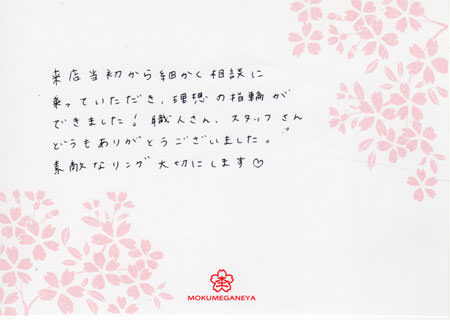 来店当初から細かく相談に
乗っていただき、理想の指輪が
できました！職人さん、スタッフさん
どうもありがとうございました。
素敵なリング大切にします♡
MOKUMEGANEYA